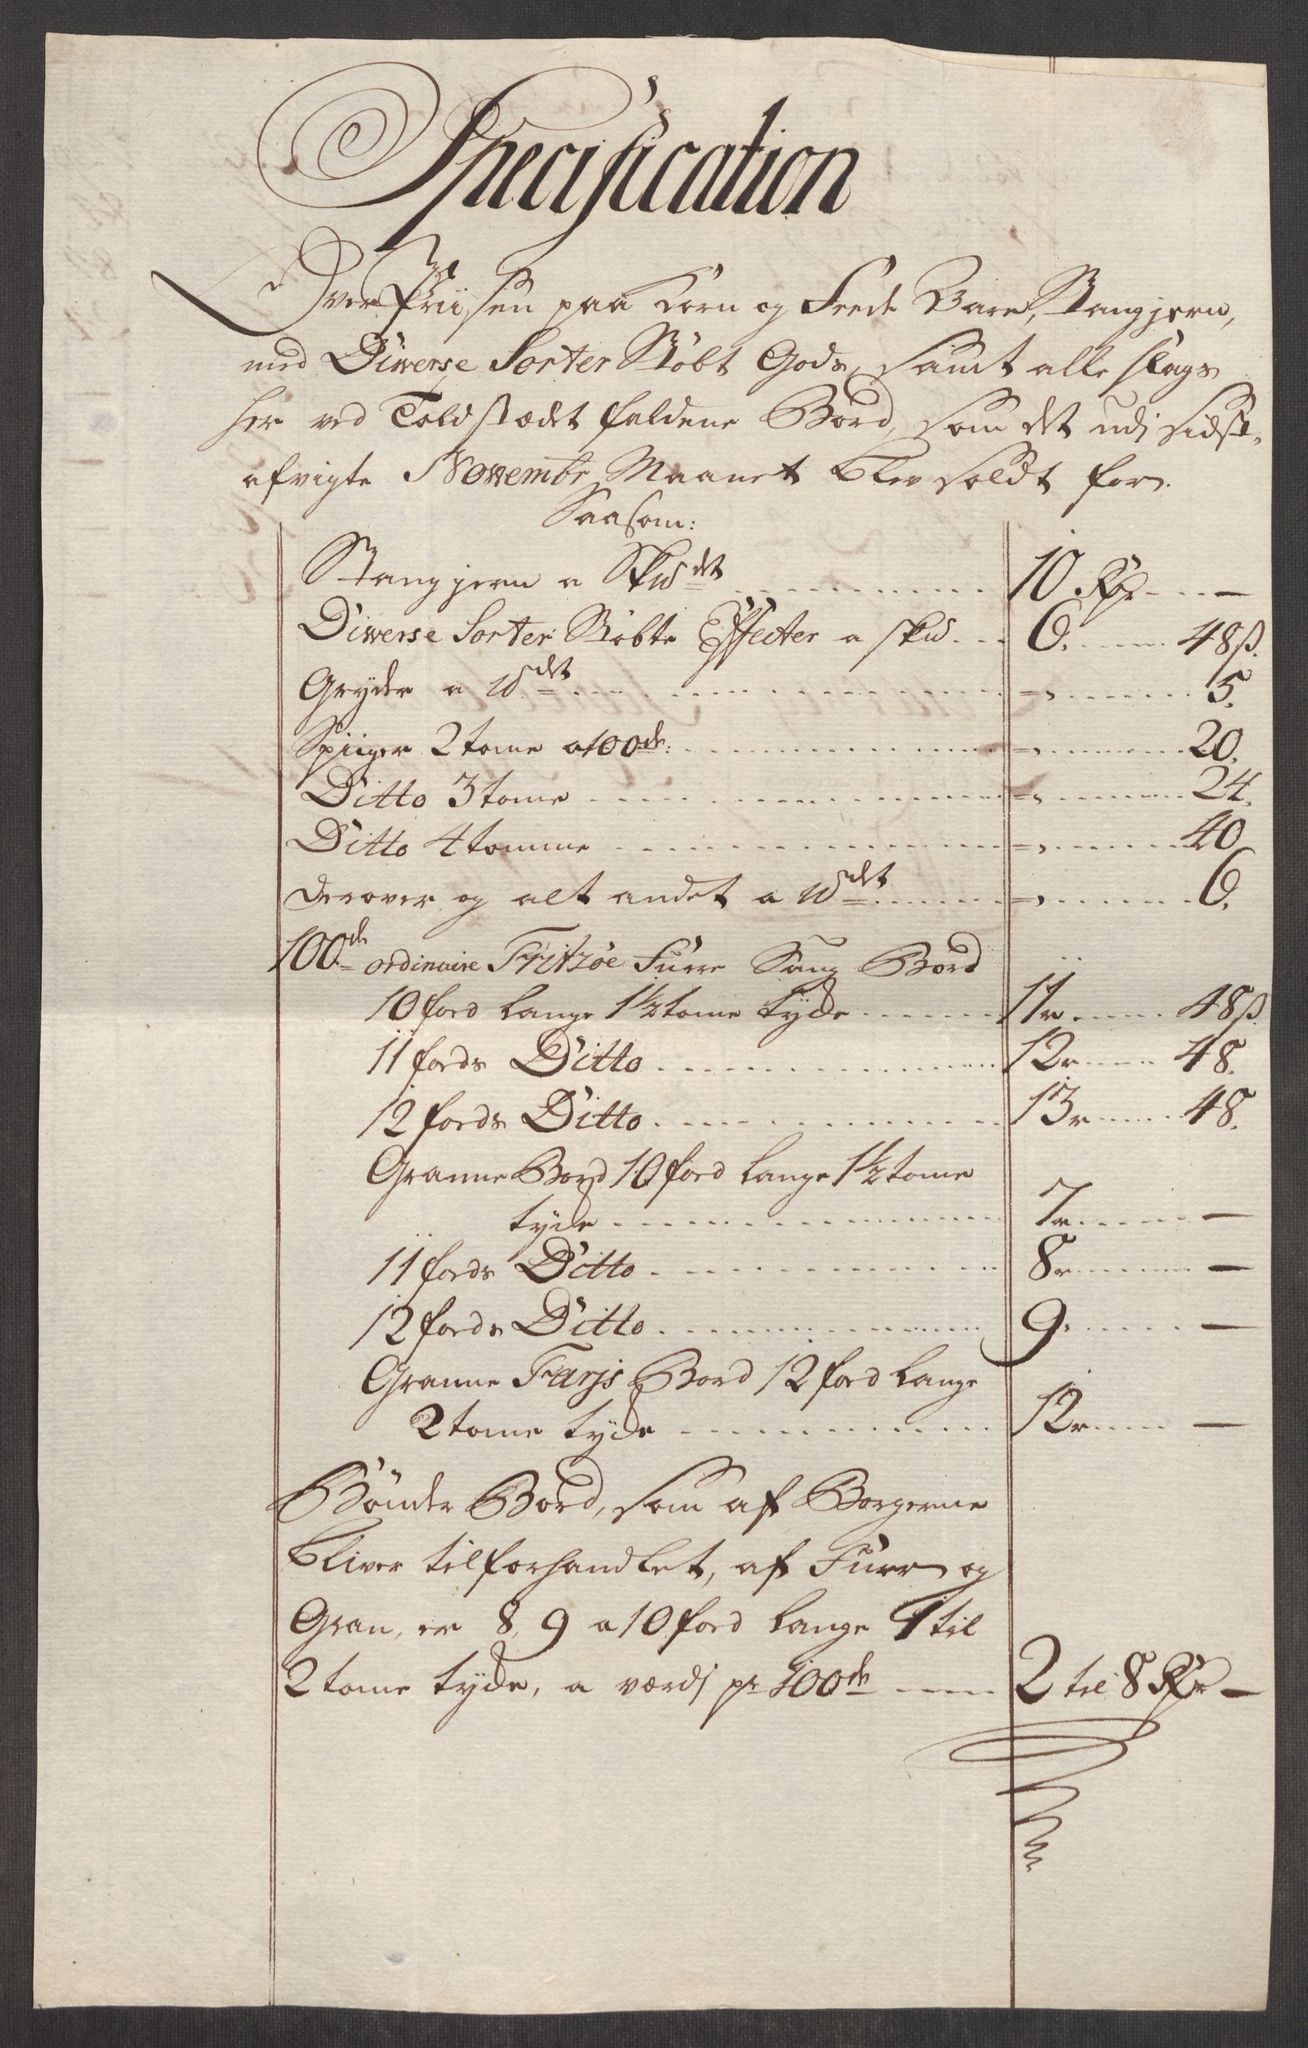 Specification
Over Priisen paa Korn og Feede Vare, Stangjern,
med Diverse Sorter Støbt Gods, samt alle slags
her ved Toldstædet faldene Bord, som det udj sidst,
afvigte Novembr Maanet blev soldt for.
Saasom:
Stangjern a Skpd det 10 Rdr —
Diverse Sorter Støbte Effecter a skpd 6. 48 ß.
Gryder a ℔ det = , 5.
Spiiger 2 tome a 100de = , 20.
Ditto 3 tome = , 24.
Ditto 4 tomme = , 40
derover og alt andet a ℔ det = , 6.
100de ordinaire Fritzøe Furre Saug Bord
10 ford lange 1½ tome tyde 11 r 48 ß.
11 fords Ditto 12 r 48.
12 fords Ditto 13 r 48.
Granne Bord 10 ford lange 1½ tome
tyde 7 r —
11 fords Ditto 8 r —
12 fords Ditto 9. —
Granne Farjs Bord 12 ford lange
2 tome tyde 12 r —
Bønder Bord, som af Borgerne
bliver tilforhandlet, af Furr og
Gran, er 8, 9 a 10 ford lange 1 til
2 tome tyde, a værdj pr 100de 2 til 8 Rdr —